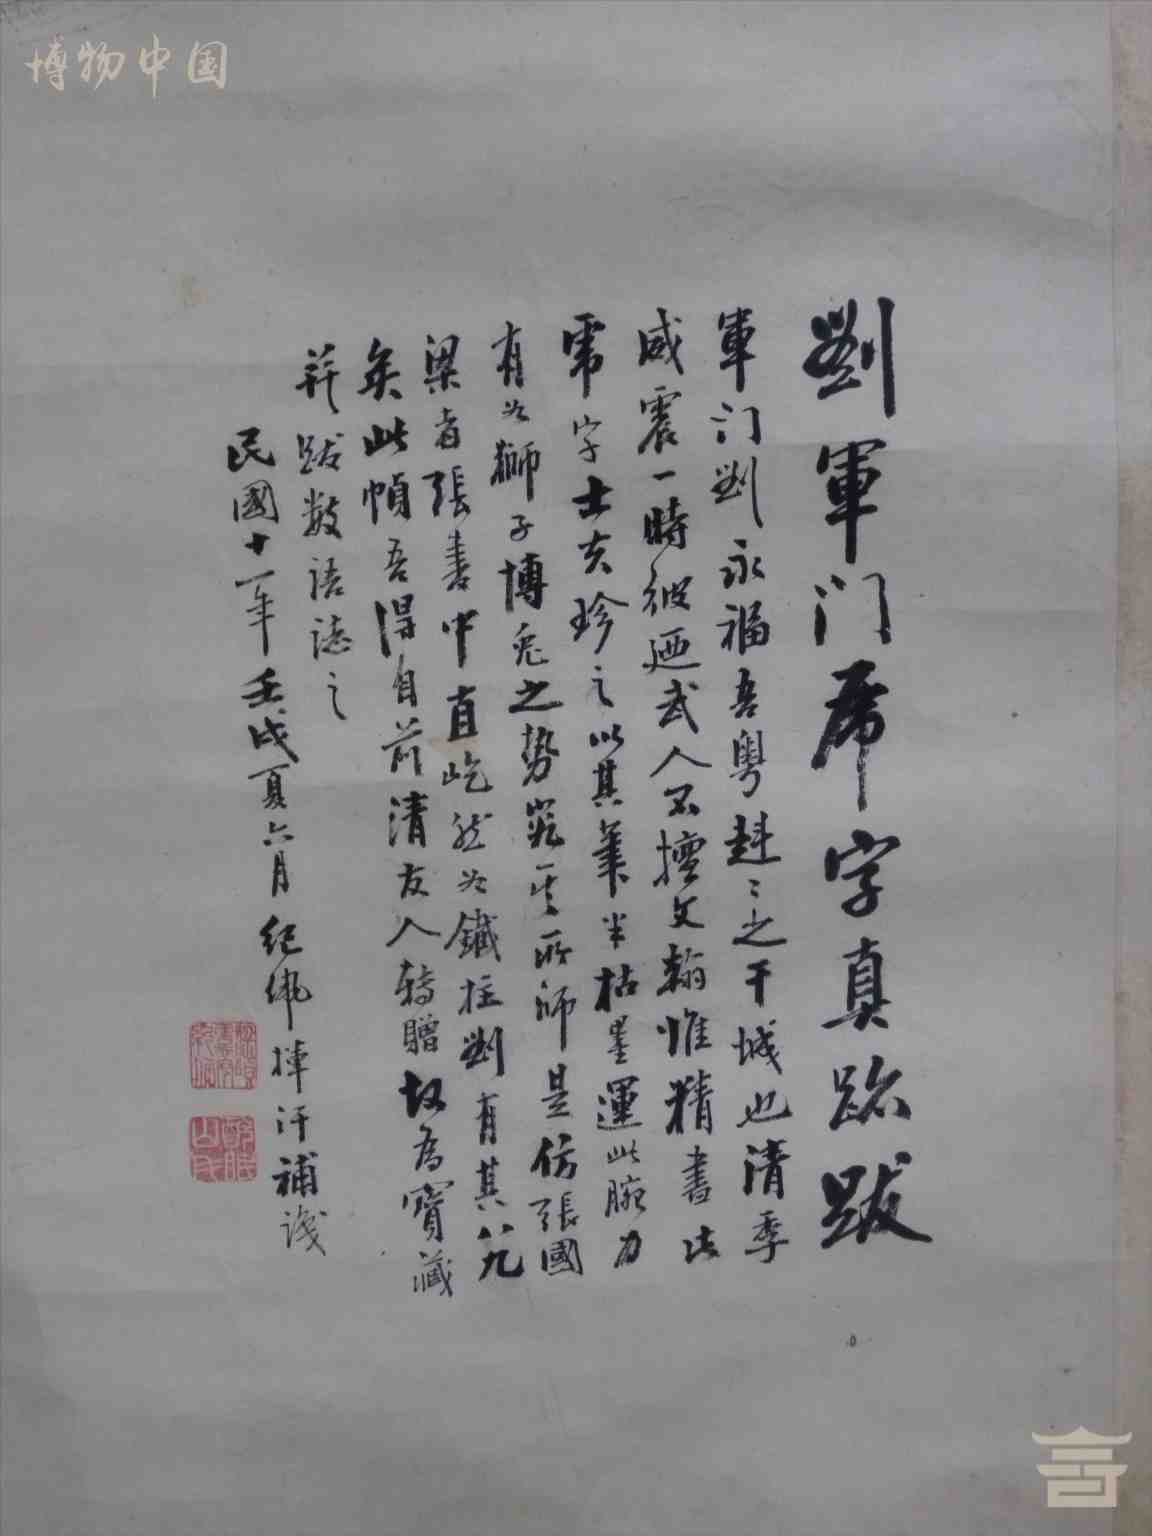 博物中国
劉軍门虎字真跡跋
軍门劉永福吾粤赳〻之干城也清季
威震一時彼迺武人不擅文翰惟精書法
虎字士夫珍之以其筆半枯墨運此腕力
有如獅子博兔之势究其所師是仿張國
梁者張書中直屹然如鐵柱劉有其八九
矣此幀吾得自前清友人轉贈故為寶藏
并跋数語誌之
民國十一年壬戌夏六月紀佩揮汗補識